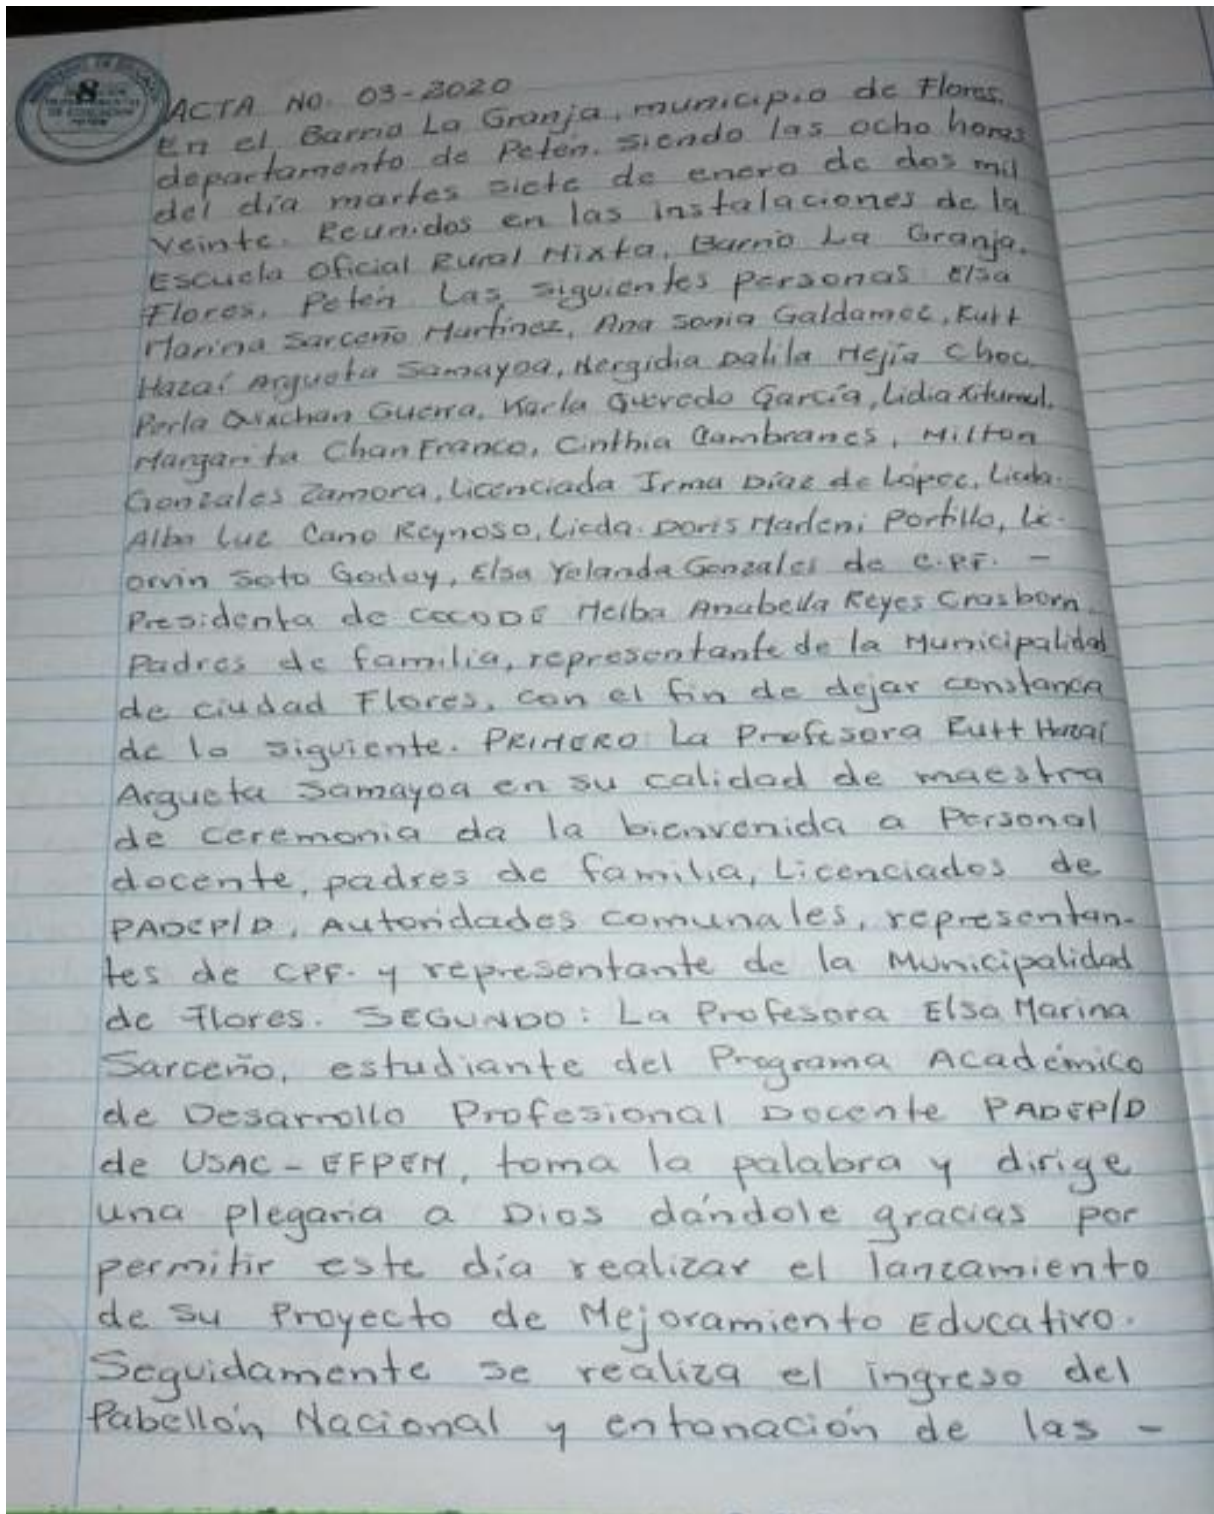 8
ACTA NO. 03-2020
En el Barrio La Granja, municipio de Flores,
departamento de Petén. Siendo las ocho horas
del día martes siete de enero de dos mil
veinte. Reunidos en las instalaciones de la
Escuela Oficial Rural Mixta, Barrio La Granja,
Flores, Petén Las siguientes personas Elsa
Marina Sarceño Martínez, Ana Sonia Galdamez, Rutt
Hazaí Argueta Samayoa, Hergidia Dalila Mejía Choc,
Perla Quixchan Guerra, Karla Quevedo García, Lidia Xitumul,
Margarita Chan Franco, Cinthia Cambranes, Milton
Gonzales Zamora, Licenciada Irma Díaz de López, Licda.
Alba Luz Cano Reynoso, Licda. Doris Marleni Portillo, Lic.
Orvin Soto Godoy, Elsa Yolanda Gonzales de C.P.F. -
Presidenta de COCODE Melba Anabella Reyes Crasborn
Padres de familia, representante de la Municipalidad
de ciudad Flores, con el fin de dejar constancia
de lo siguiente. PRIMERO: La Profesora Rutt Hazaí
Argueta Samayoa en su calidad de maestra
de ceremonia da la bienvenida a Personal
docente, padres de familia, Licenciados de
PADEP/D, Autoridades comunales, representan-
tes de CPF. y representante de la Municipalidad
de Flores. SEGUNDO: La Profesora Elsa Marina
Sarceño, estudiante del Programa Académico
de Desarrollo Profesional Docente PADEP/D
de USAC - EFPEM, toma la palabra y dirige
una plegaria a Dios dándole gracias por
permitir este día realizar el lanzamiento
de su Proyecto de Mejoramiento Educativo.
Seguidamente se realiza el ingreso del
Pabellón Nacional y entonación de las -